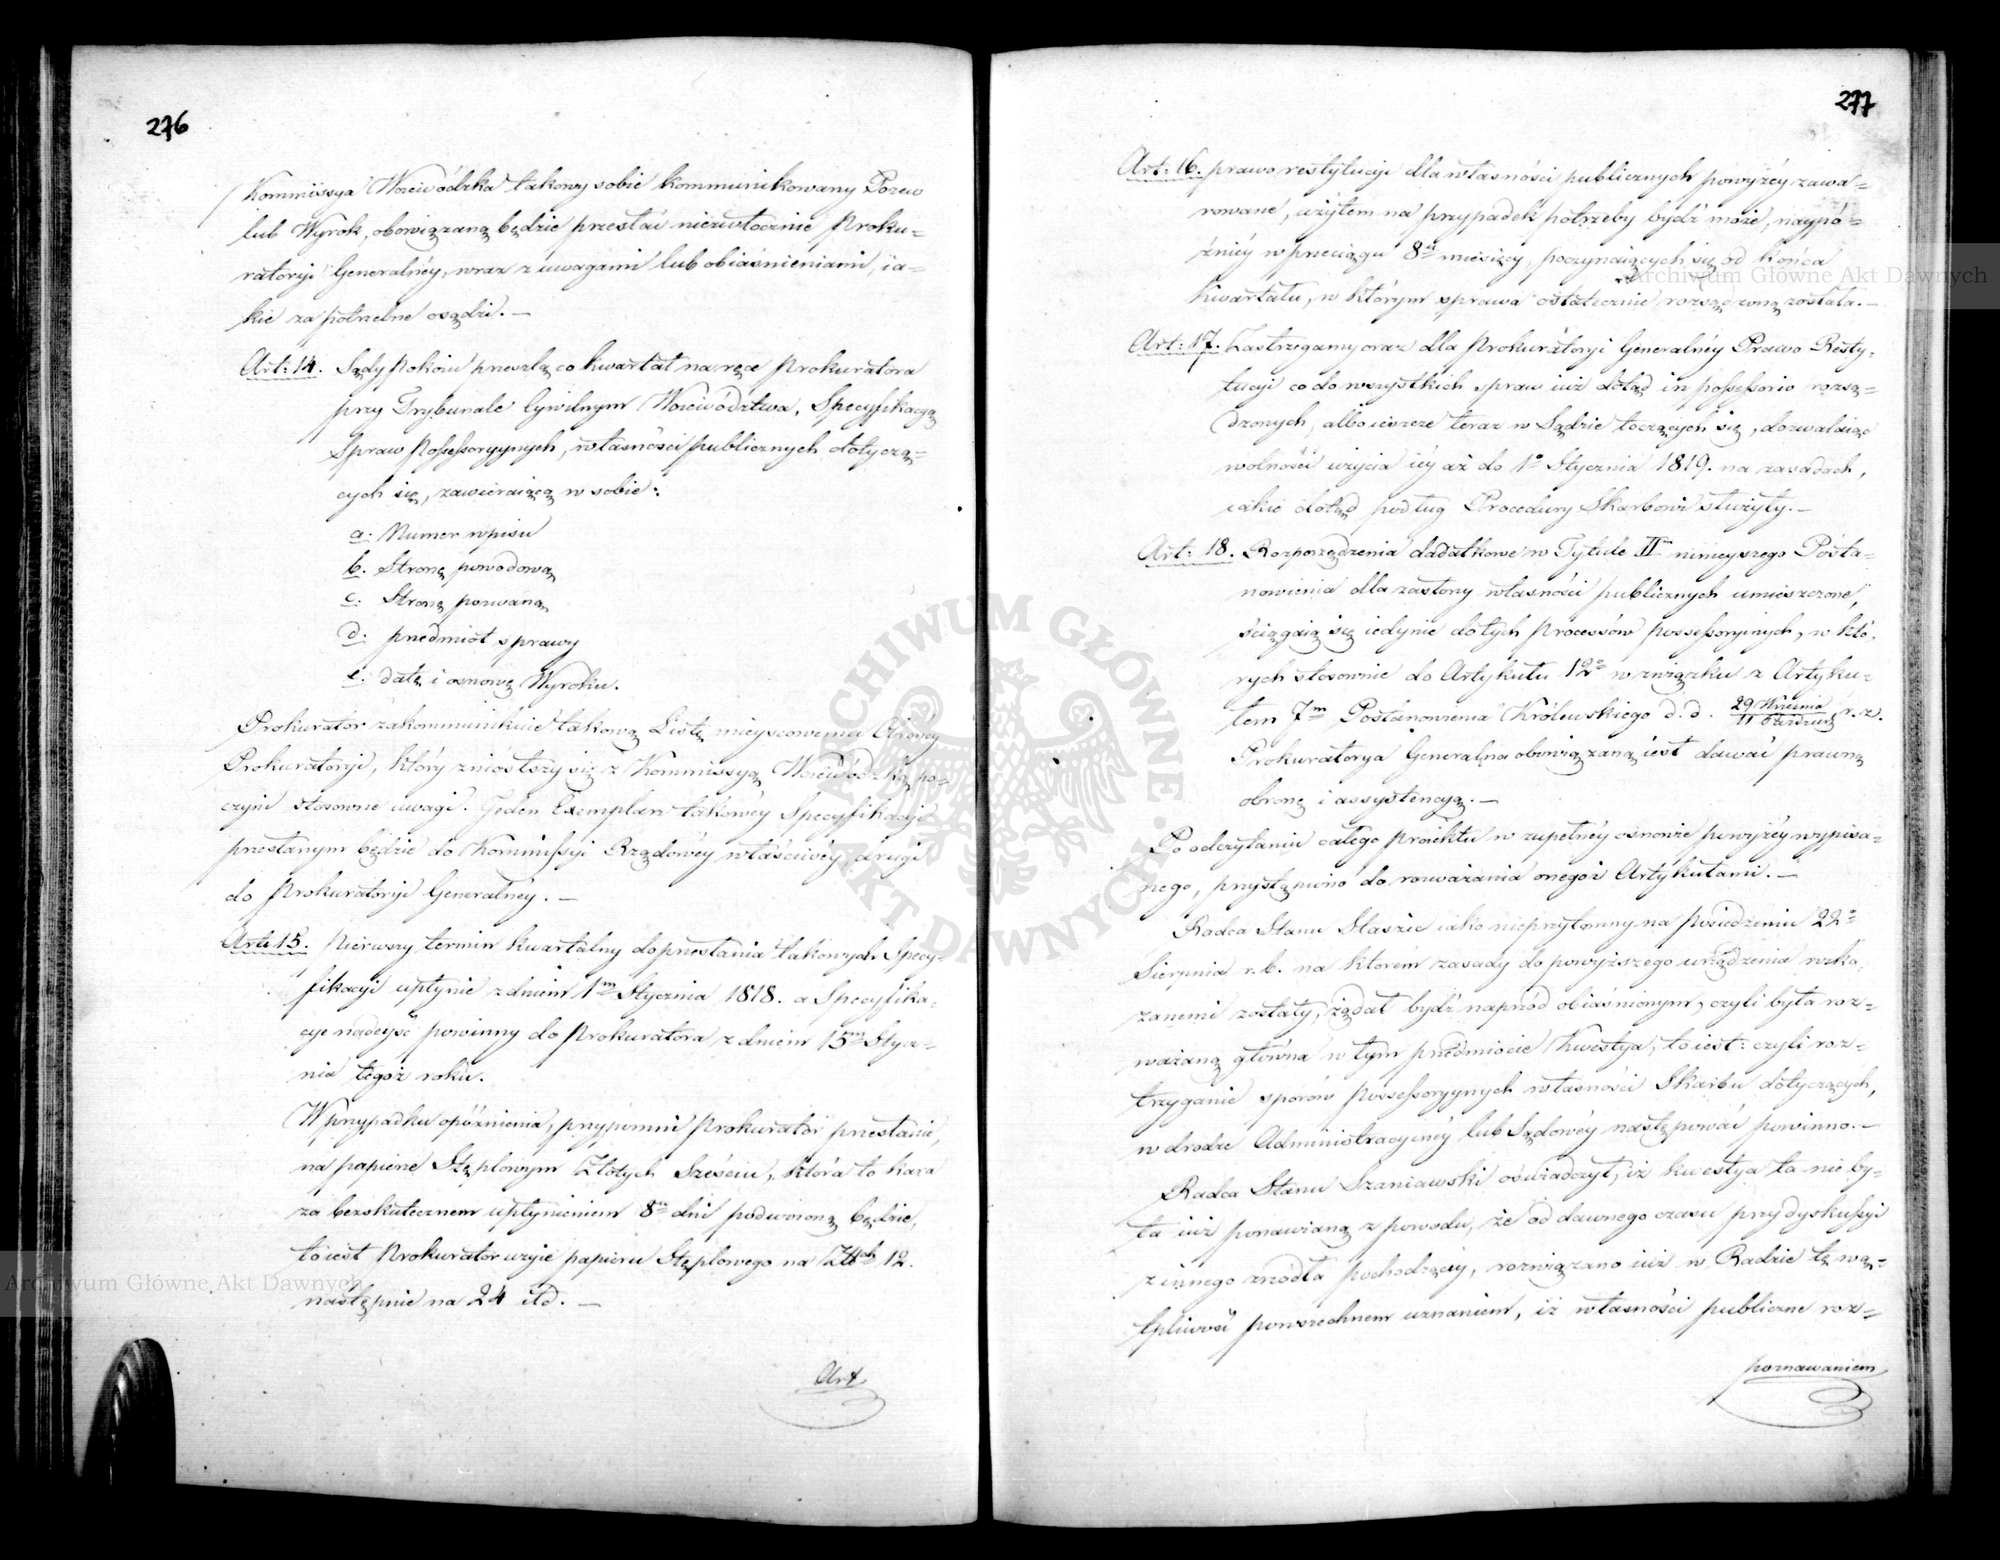 276
Kommissya Woiewódzka takowy sobie kommunikowany Pozew
lub Wyrok, obowiązaną będzie przesłać niezwłocznie Proku-
ratoryi Generalney, wraz z uwagami lub obiaśnieniami, ia-
kie za potrzebne osądzi. —
Art: 14. Sądy Pokoiu prześlą co kwartał na ręce Prokuratora
przy Trybunale Cywilnym Woiewództwa, Specyfikacyą
Spraw Possessoryynych, własności publicznych dotyczą-
cych się, zawieraiącą w sobie:
a. Numer wpisu
b. Stronę powodową
c. Stronę pozwaną
d. przedmiot sprawy
e. datę i osnowę Wyroku.
Prokurator zakommunikuie takową Listę mieyscowemu Obrońcy
Prokuratoryi, który zniósłszy się z Kommissyą Woiewódzką po-
czyni stosowne uwagi. Jeden Exemplarz takowey Specyfikacyi
przesłanym będzie do Kommissyi Rządowey właściwéy, drugi
do Prokuratoryi Generalney. —
Art: 15. Pierwszy termin kwartalny do przesłania takowych Specy-
fikacyi upłynie z dniem 1m Stycznia 1818. a Specyfika-
cye nadeyść powinny do Prokuratora z dniem 15m Stycz-
nia tegoż roku.
W przypadku opóźnienia, przypomni Prokurator przesłanie,
na papierze Stęplowym Złotych Sześciu, która to kara
za bezskutecznem upłynieniem 8u dni podwoioną będzie,
to iest Prokurator użyie papieru Stęplowego na Złłch 12.
następnie na 24 itd. —
Art
277
Art: 16. prawo restytucyi dla własności publicznych powyżéy zawa-
rowane, użytem na przypadek potrzeby bydź może, naypó-
źniéy w przeciągu 8u miesięcy, poczynaiących się od końca
kwartału, w którym sprawa ostatecznie rozsądzoną została. —
Art: 17. Zastrzegamy oraz dla Prokuratoryi Generalnéy Prawo Resty-
tucyi co do wszystkich spraw iuż dotąd in possessorio rozsą-
dzonych, albo ieszcze teraz w Sądzie toczących się, dozwalaiąc
wolności użycia iéy aż do 1o Stycznia 1819. na zasadach,
iakie dotąd podług Procedury Skarbowi służyły. —
Art: 18. Rozporządzenia dodatkowe w Tytule II ninieyszego Posta-
nowienia dla zasłony własności publicznych umieszczone,
ściągaią się iedynie do tych Processów possessoryinych, w któ-
rych stosownie do Artykułu 12o w związku z Artyku-
łem 7m Postanowienia Królewskiego d. d. 29 Września / 11 Październ. r. z.
Prokuratorya Generalna obowiązaną iest dawać prawną
obronę i assystencyą. —
Po odczytaniu całego Proiektu w zupełnéy osnowie powyżéy wypisa-
nego, przystąpiono do rozważania onegoż Artykułami. —
Radca Stanu Staszic iako nieprzytomny na posiedzeniu 22o
Sierpnia r. b. na którém zasady do powyższego urządzenia wska-
zanemi zostały, żądał bydź naprzód obiaśnionym, czyli była roz-
ważaną główna w tym przedmiocie Kwestya, to iest: czyli roz-
trzyganie sporów possessoryynych własności Skarbu dotyczących,
w drodze Administracyinéy lub Sądowéy następować powinno. —
Radca Stanu Szaniawski oświadczył, iż kwestya ta nie by-
ła iuż ponawianą z powodu, że od dawnego czasu przy dyskussyi
z innego źrzodła pochodzącéy, rozwiązano iuż w Radzie tę wą-
tpliwość powszechnem uznaniem, iż własności publiczne roz-
poznawaniem
Archiwum Główne Akt Dawnych
Archiwum Główne Akt Dawnych
ARCHIWUM GŁÓWNE AKT DAWNYCH